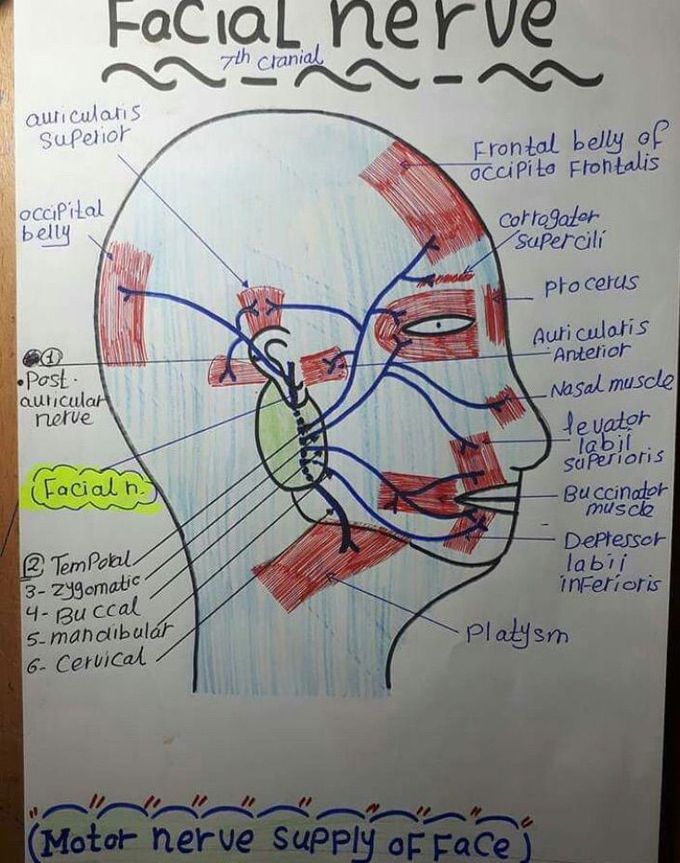 Facial nerve
7th cranial
auricularis
superior
Frontal belly of
occipito Frontalis
occipital
belly
corrogator
supercili
procerus
Auricularis
Anterior
1
• Post.
auricular
nerve
Nasal muscle
levator
labil
superioris
(Facial n.)
Buccinator
muscle
Depressor
labii
inferioris
2 Temporal
3- zygomatic
4- Buccal
5- mandibular
6- Cervical
Platysm
(Motor nerve supply of Face)